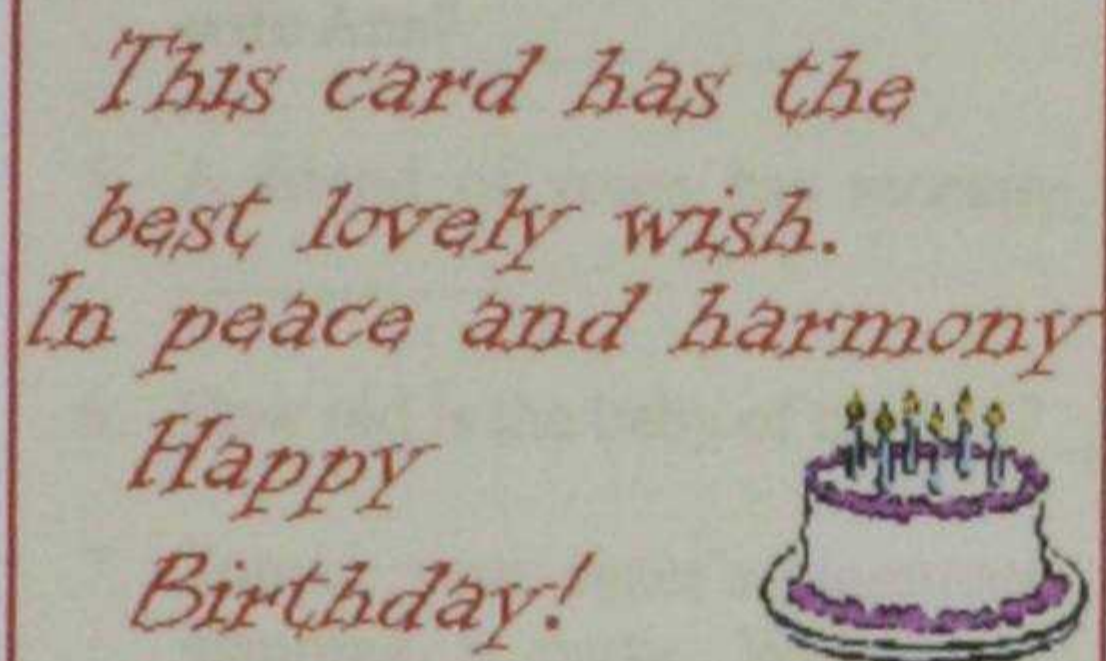 This card has the
best lovely wish.
In peace and harmony
Happy
Birthday!